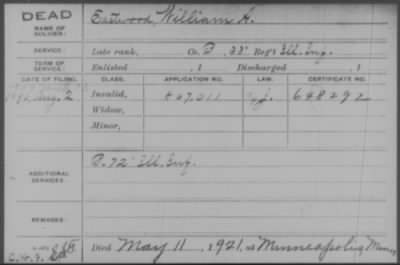 DEAD
NAME OF SOLDIER: Eastwood, William A.
SERVICE: Late rank, Co. F. 33" Reg't Ill. Inf.
TERM OF SERVICE: Enlisted , 1 Discharged , 1
DATE OF FILING. CLASS. APPLICATION NO. LAW. CERTIFICATE NO.
1890, Aug. 2 Invalid, 648292
Widow,
Minor,
ADDITIONAL SERVICES: 72" Ill. Inf.
REMARKS:
Died May 11, 1921, at Minneapolis, Minn